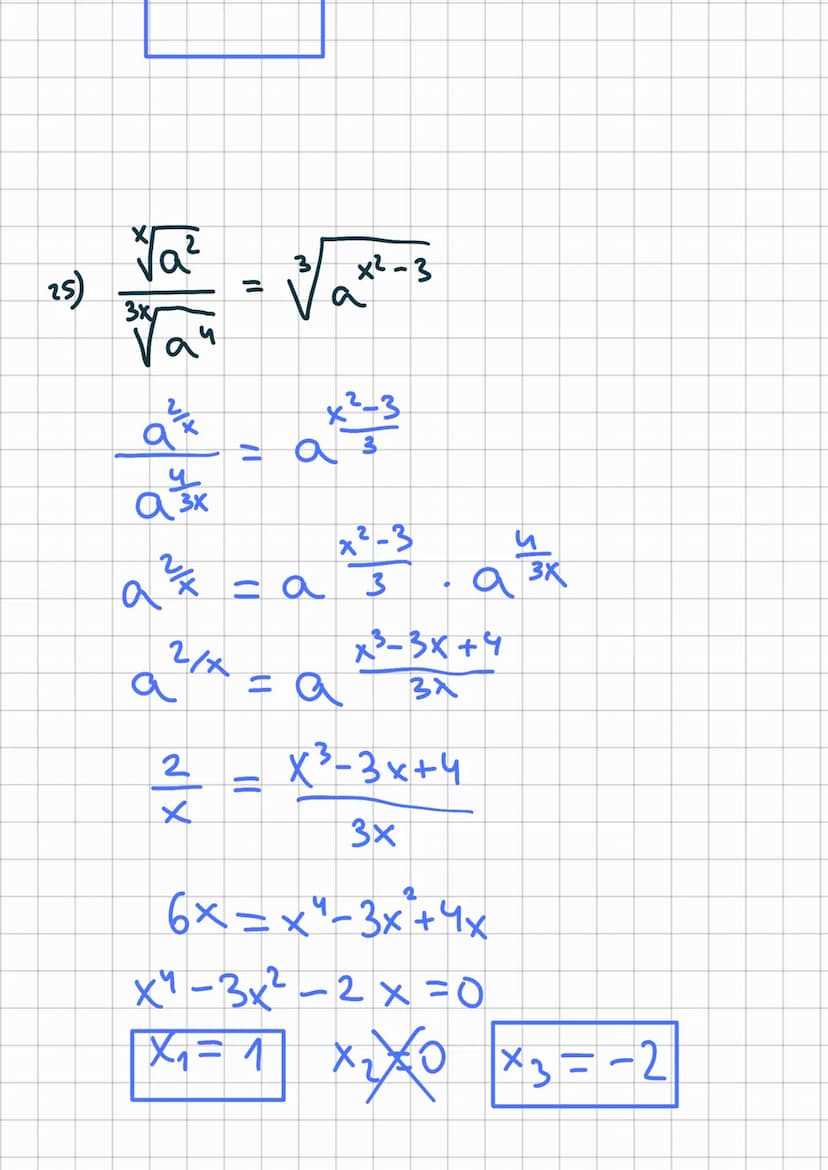 25) \frac{\sqrt[x]{a^2}}{\sqrt[3x]{a^4}} = \sqrt[3]{a^{x^2-3}}
\frac{a^{\frac{2}{x}}}{a^{\frac{4}{3x}}} = a^{\frac{x^2-3}{3}}
a^{\frac{2}{x}} = a^{\frac{x^2-3}{3}} · a^{\frac{4}{3x}}
a^{2/x} = a^{\frac{x^3-3x+4}{3x}}
\frac{2}{x} = \frac{x^3-3x+4}{3x}
6x = x^4-3x^2+4x
x^4-3x^2-2x=0
x_1=1 x_2=0 x_3=-2